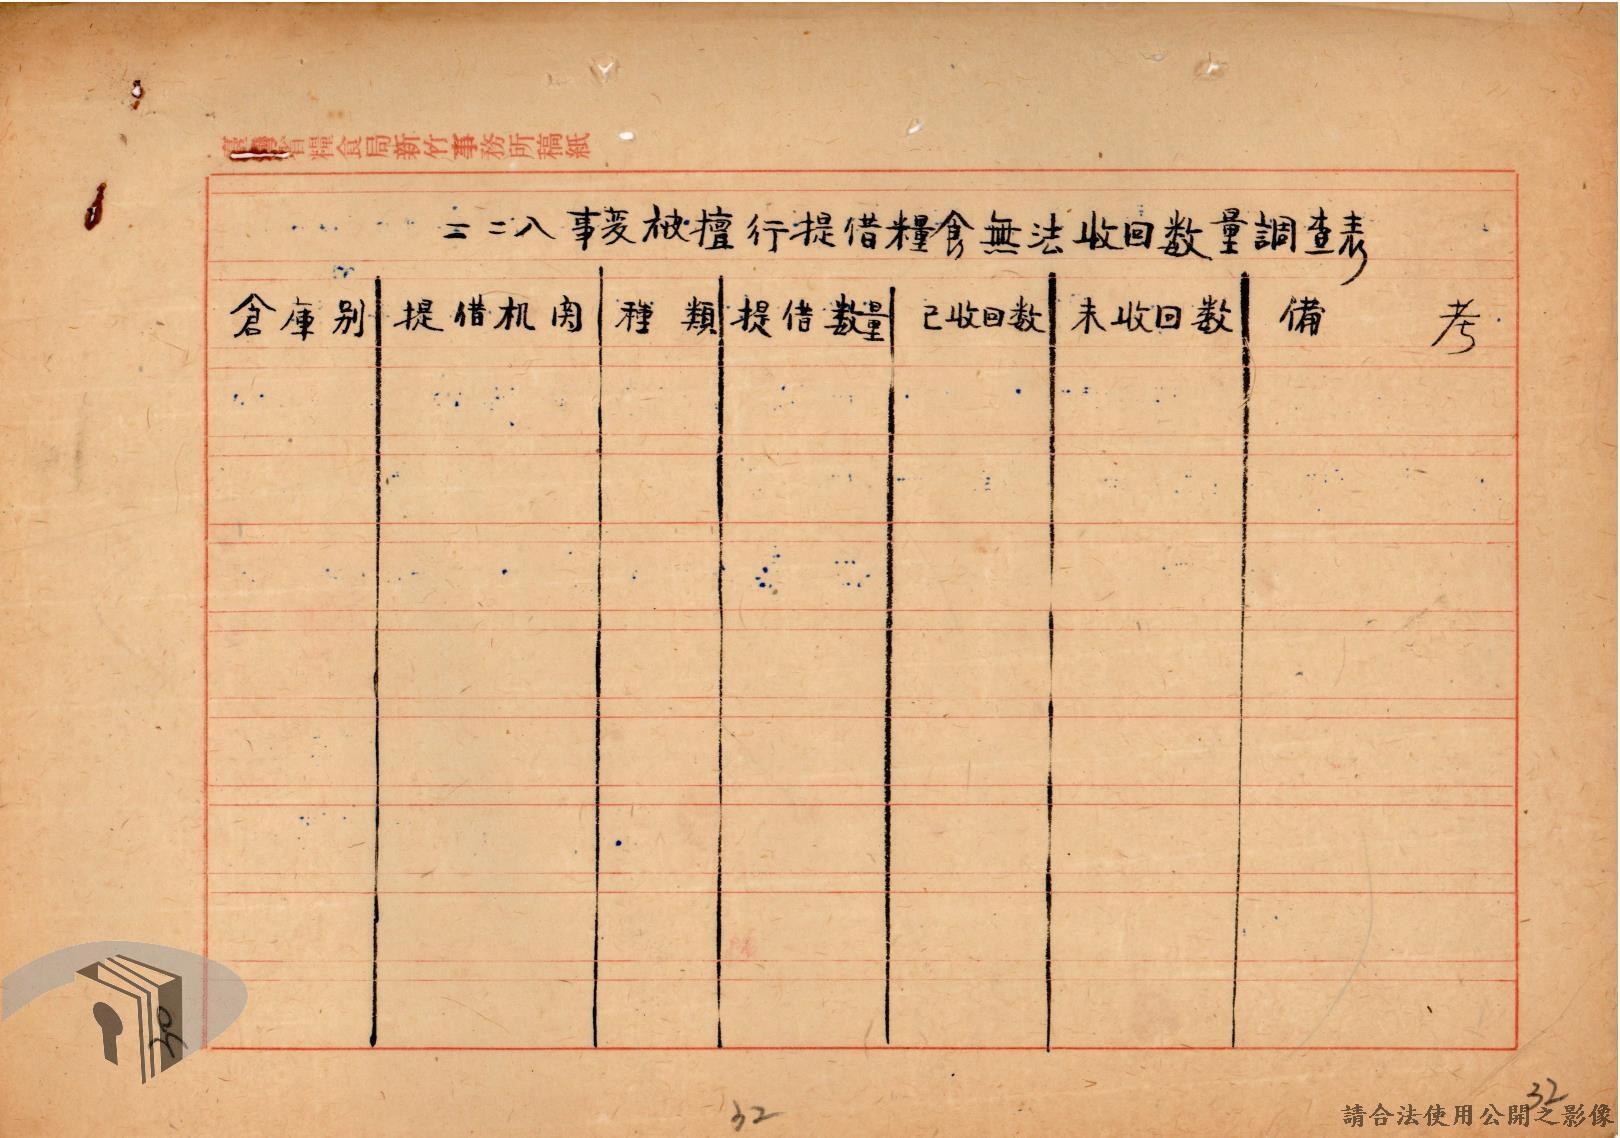 臺灣省糧食局新竹事務所稿紙
二二八事變被擅行提借糧食無法收回数量調查表
倉庫别 提借机関 種類 提借数量 已收回数 未收回数 備考
30
32
32
請合法使用公開之影像